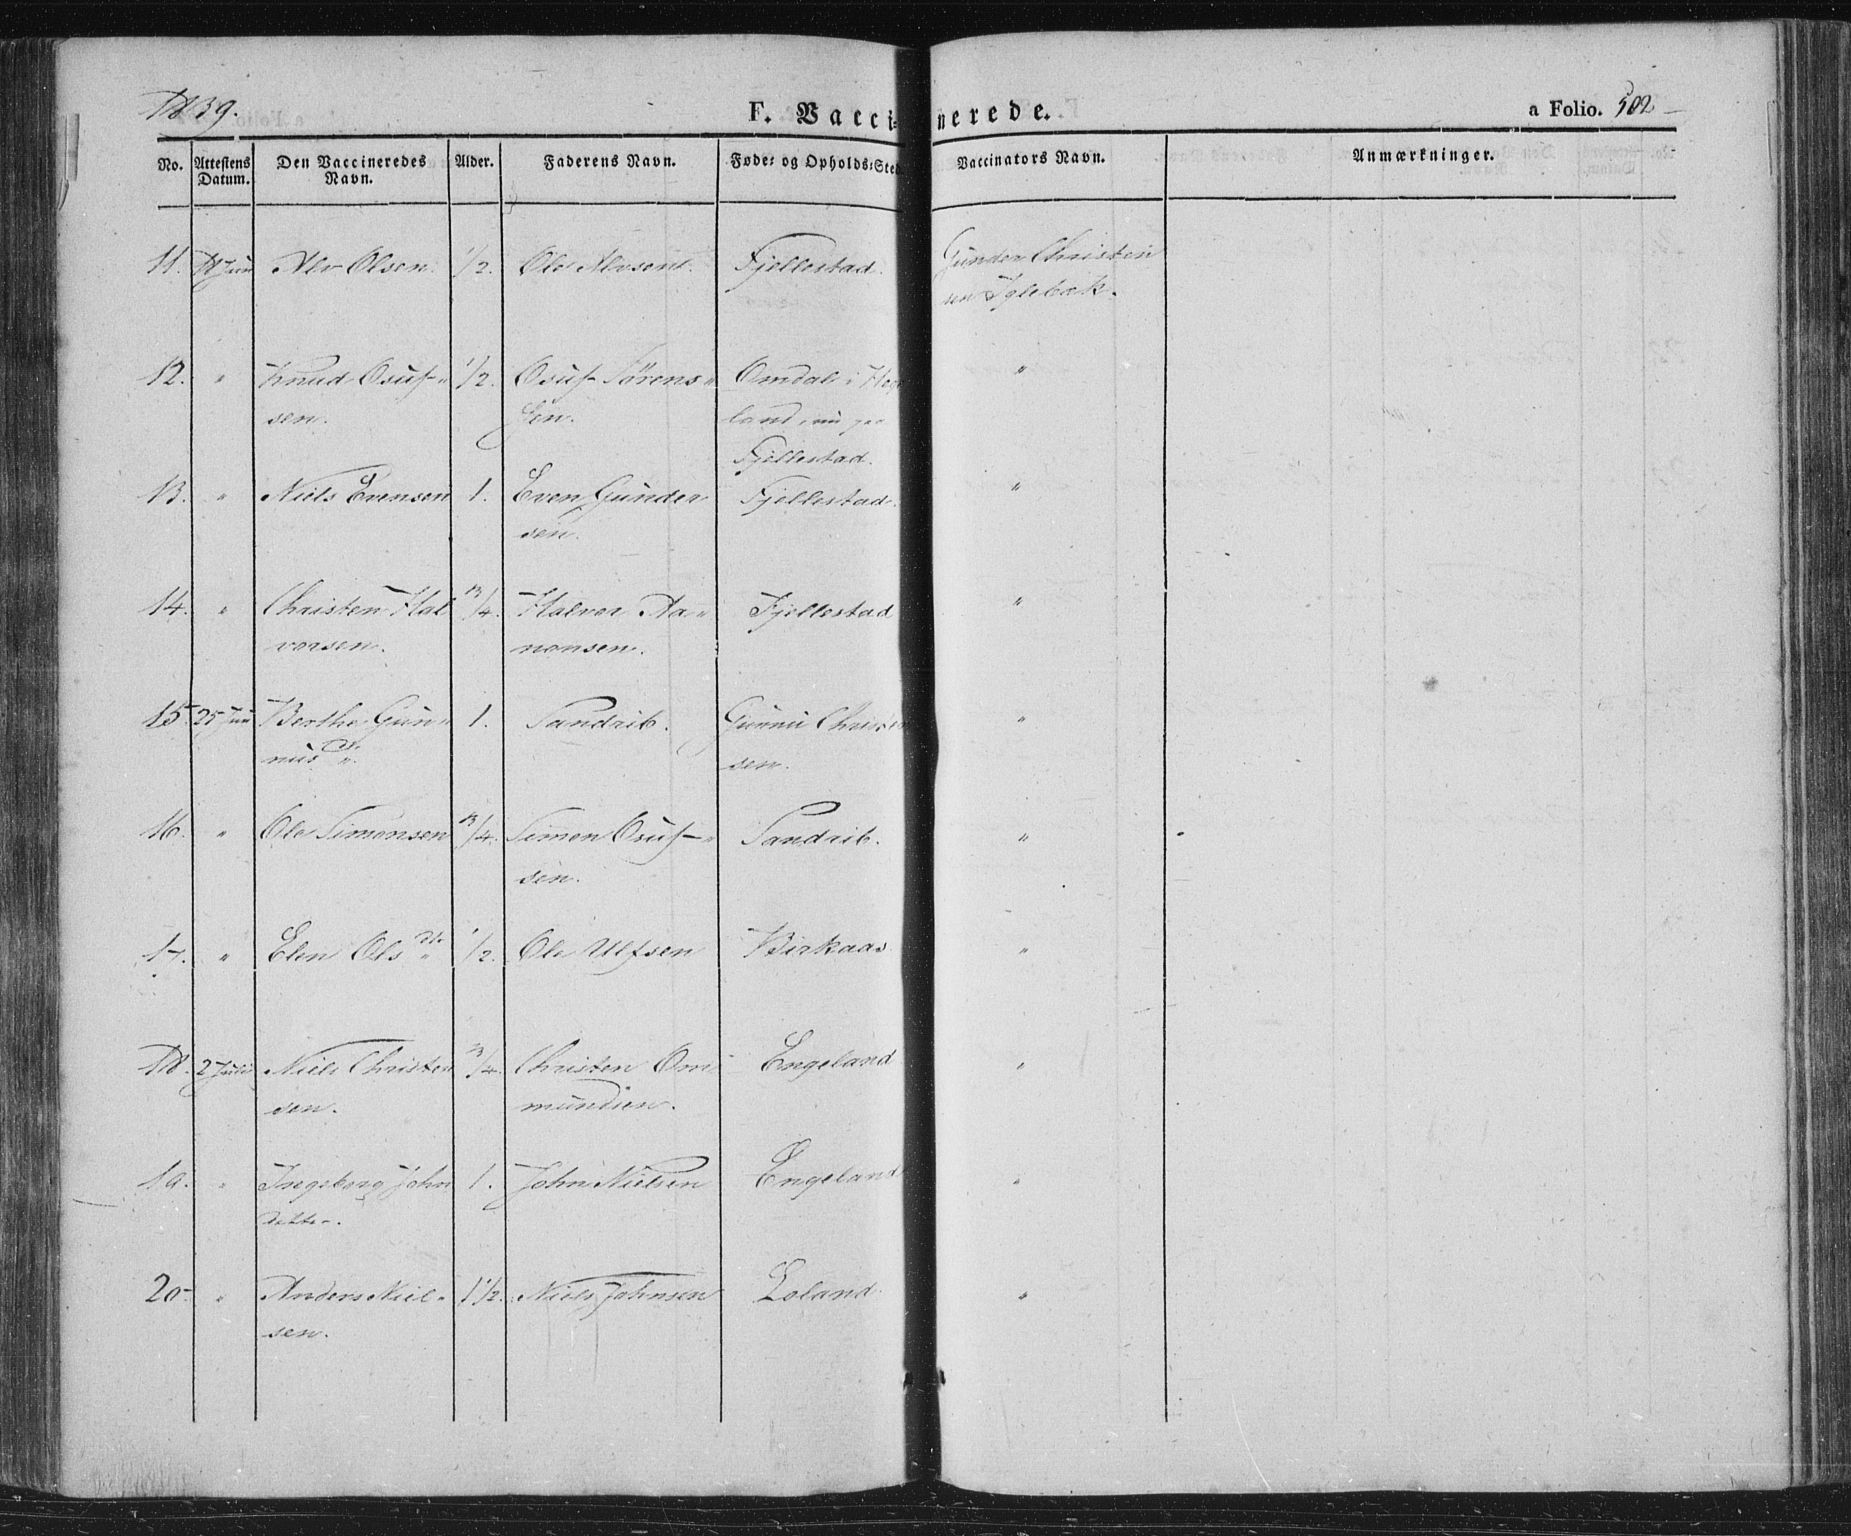 1839.
F. Vaccinerede.
a Folio. 502
No. Attestens Datum. Den Vaccineredes Navn. Alder. Faderens Navn. Føde- og Opholds-Sted Vaccinators Navn. Anmærkninger.
11. 18 Juni Alv Olsen. 1/2. Ole Alvsen. Fjellestad. Gunder Christen
sen Iglebæk.
12. " Knud Osuf- 1/2. Osuf Sörens Omdal i Hege "
sen. sen. land, nu paa
Fjellestad.
13. " Niels Evensen 1. Even Gunder Fjellestad. "
sen.
14. " Christen Hal 3/4. Halvor Aa- Fjellestad "
vorsen. nonsen.
15 25 Juni Berthe Gun- 1. Sandrib. Gunnu Christen "
nus D. sen.
16. " Ole Simonsen 3/4. Simon Osuf- Sandrib. "
sen.
17. " Elen Ols Dr. 1/2. Ole Ulfsen Birkaas "
18. 2 Juli Niels Christen 3/4. Christen Om Engeland "
sen. mundsen.
19. " Ingeborg John 1. John Nielsen Engeland "
datter.
20 " Anders Niel- 1 1/2. Niels Johnsen Loland "
sen.